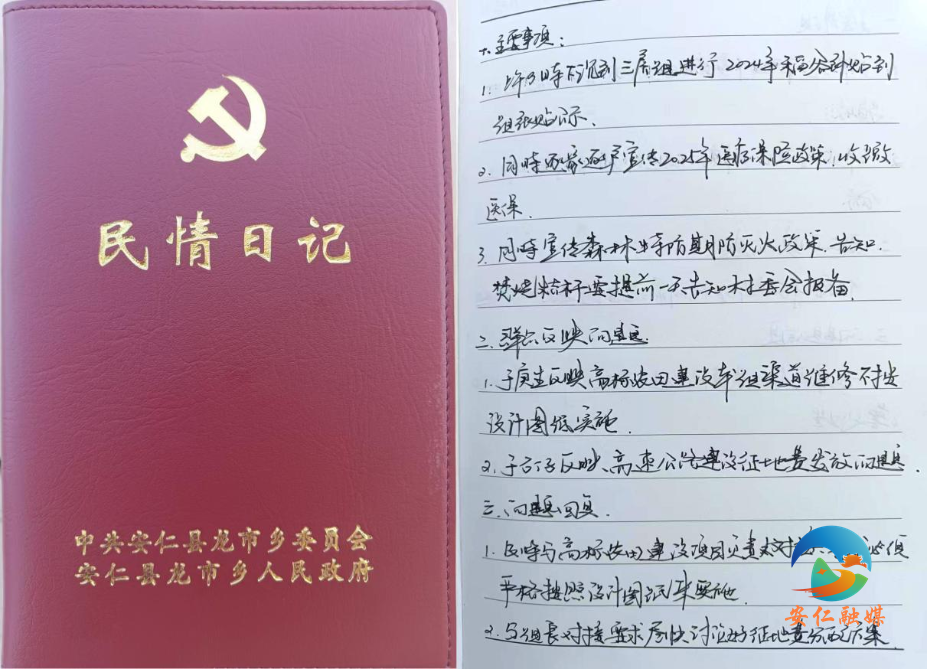 民情日记
中共安仁县龙市乡委员会
安仁县龙市乡人民政府
一.主要事项:
1. 上午9时下沉到三居组进行2024年稻谷补贴到
组张贴公示.
2. 同时逐家逐户宣传2025年医疗保险政策.收缴
医保.
3. 同时宣传森林特防期防灭火政策.告知.
焚烧秸秆要提前一天告知村委会报备.
二.群众反映问题.
1. 反映高标农田建设本组渠道维修不按
设计图纸实施.
2. 反映.高速公路建设征地费发放问题.
三.问题回复.
1. 及时与高标农田建设项目负责人对接
严格按照设计图纸来实施.
2. 与组长对接要求尽快讨论好征地费分配方案.
安仁融媒